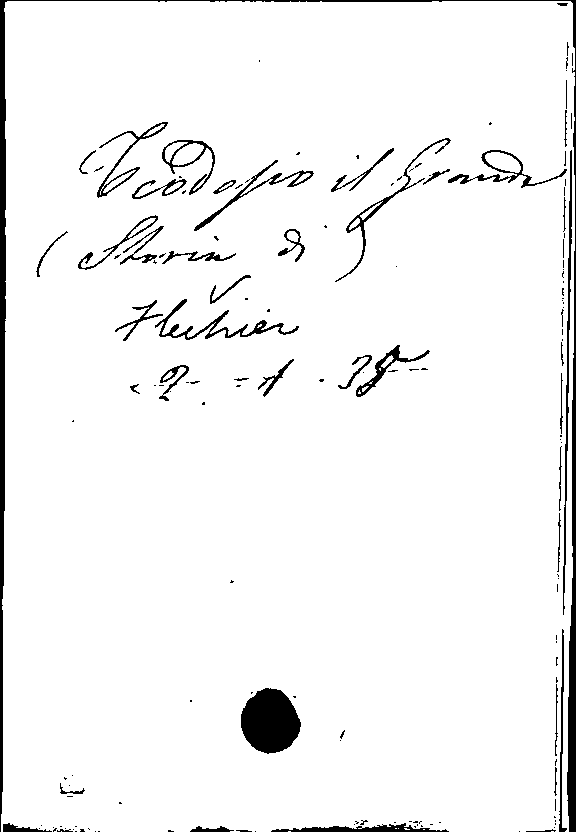 Teodosio il Grande
(Storia di)
Flechier
2 - A